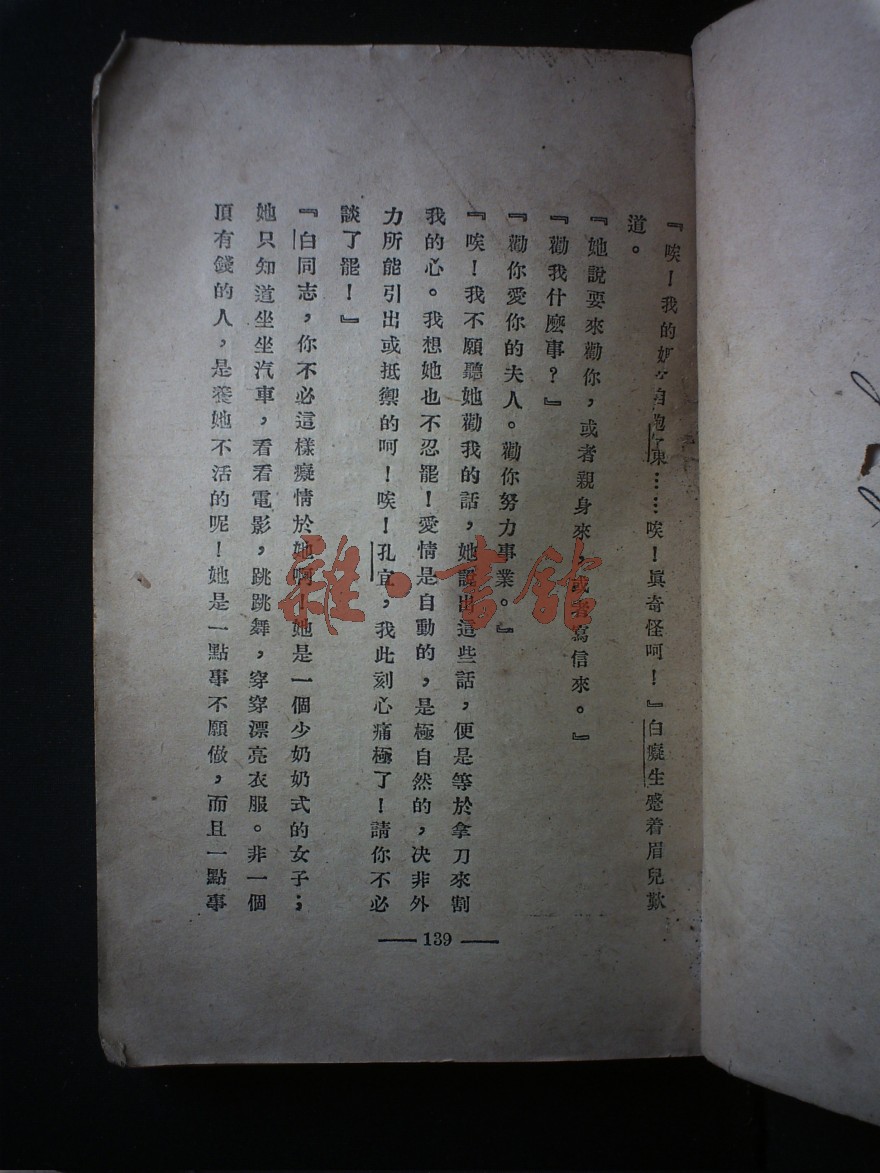 『唉！我的……唉！眞奇怪呵！』白癡生蹙着眉兒歎
道。
『她說要來勸你，或者親身來，或者寫信來。』
『勸我什麽事？』
『勸你愛你的夫人。勸你努力事業。』
『唉！我不願聽她勸我的話，她說出這些話，便是等於拿刀來割
我的心。我想她也不忍罷！愛情是自動的，是極自然的，决非外
力所能引出或抵禦的呵！唉！孔宜，我此刻心痛極了！請你不必
談了罷！』
『白同志，你不必這樣癡情於她啊！她是一個少奶奶式的女子；
她只知道坐坐汽車，看看電影，跳跳舞，穿穿漂亮衣服。非一個
頂有錢的人，是養她不活的呢！她是一點事不願做，而且一點事
139
雜·書館